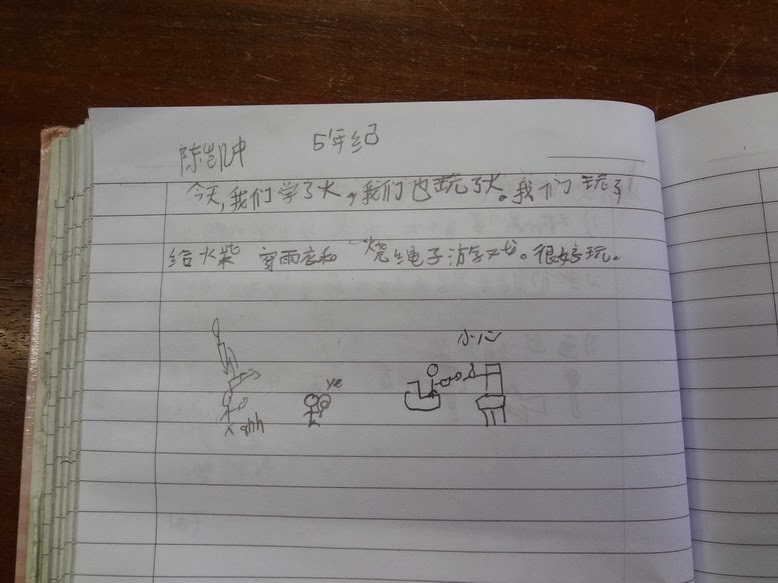 陈凯中 5年纪
今天,我们学了火,我们也玩了火。我们玩了
给火柴穿雨衣和烧绳子游戏。很好玩。
小心
ye
ahh